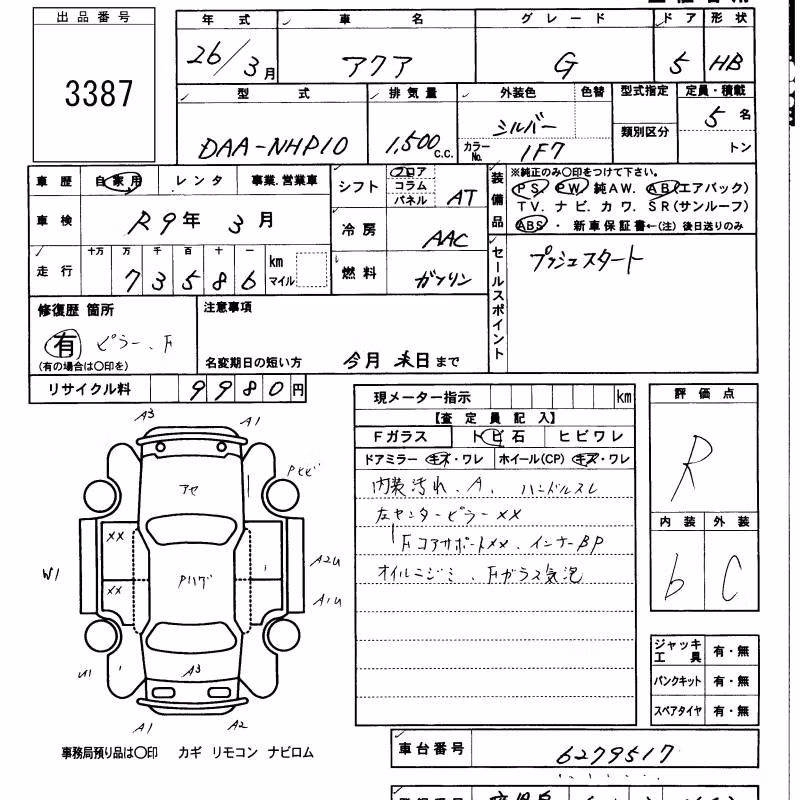 出品番号
3387
年式 車名 グレード ドア 形状
26/3月 アクア G 5 HB
型式 排気量 外装色 色替 型式指定 定員・積載
類別区分
DAA-NHP10 1,500 c.c. シルバー 5名
カラーNo. 1F7 トン
車歴 自家用 レンタ 事業.営業車
車検 R9年 3月
走行 十万 万 千 百 十 一
73586 km マイル
シフト フロア コラム パネル AT
冷房 AAC
燃料 ガソリン
装備品
※純正のみ〇印をつけて下さい。
PS PW 純AW. AB(エアバック)
TV. ナビ. カワ. SR(サンルーフ)
ABS ・ 新車保証書←(注) 後日送りのみ
セールスポイント
プッシュスタート
修復歴 箇所
有 ピラー、F
(有の場合は〇印を)
注意事項
名変期日の短い方 今月 末日まで
リサイクル料 9980円
A3 A1
Pとび
アセ
XX
Pハゲ
XX
W1
A2U
A1U
U1
A3
A1 A2
事務局預り品は〇印 カギ リモコン ナビロム
現メーター指示 km
【査定員記入】
Fガラス トビ石 ヒビワレ
ドアミラー キズ・ワレ ホイール(CP) キズ・ワレ
内装汚れ、A、ハンドルスレ
左センターピラーXX
FコアサポートXX、インナーBP
オイルニジミ、Fガラス気泡
評価点
R
内装 外装
b C
ジャッキ工具 有・無
パンクキット 有・無
スペアタイヤ 有・無
車台番号 6279517